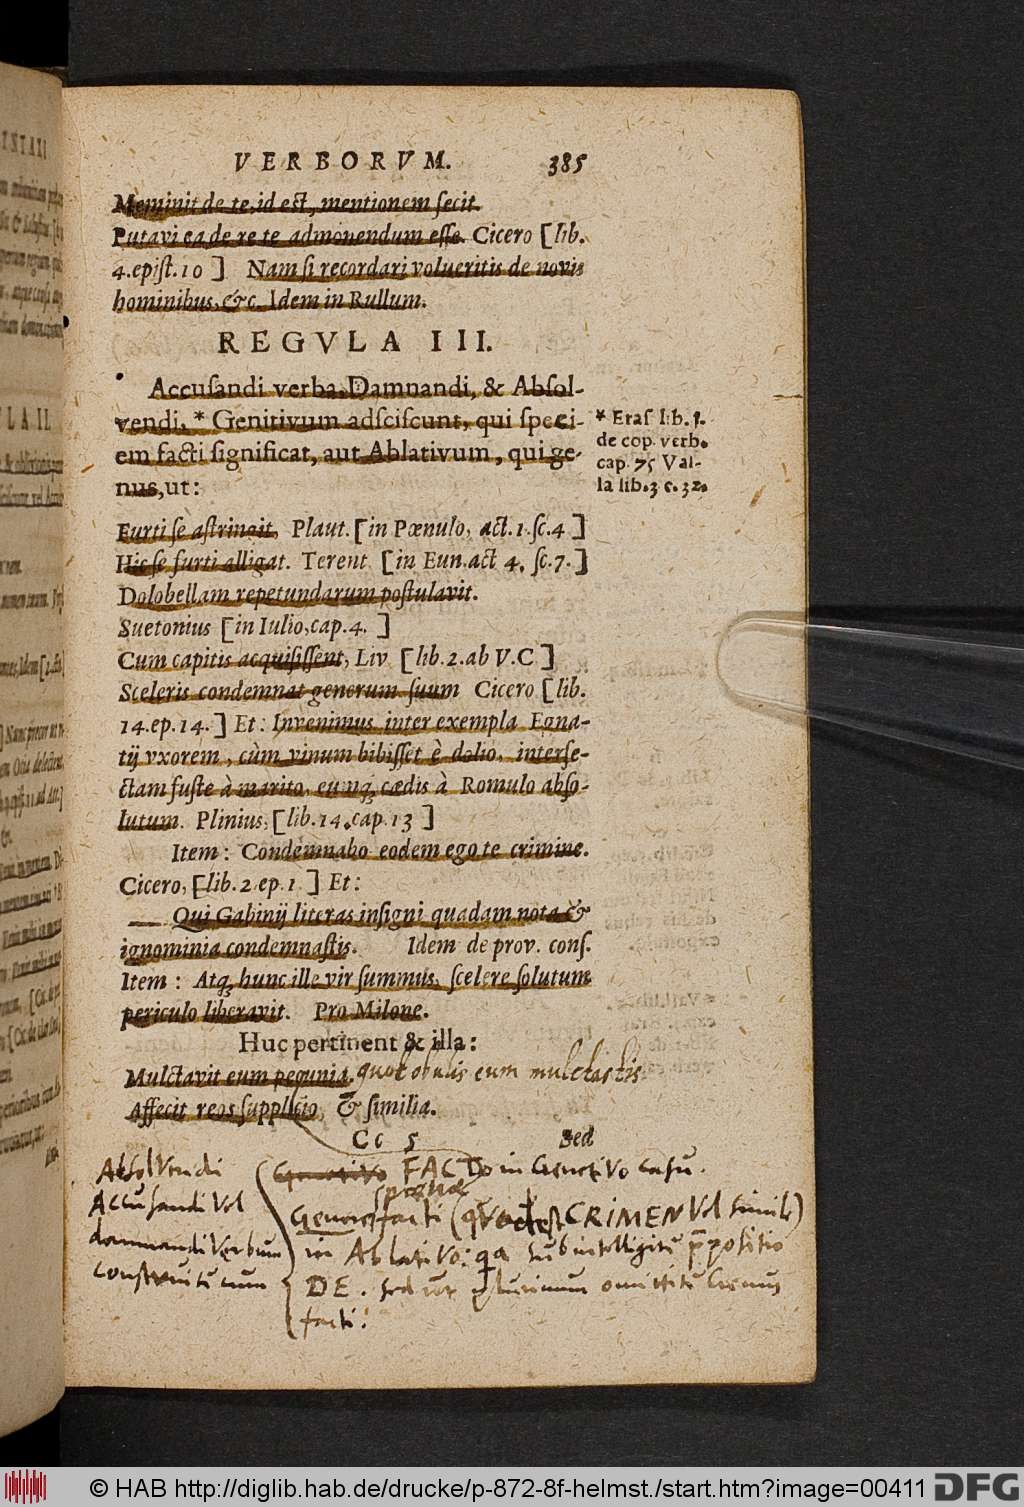 VERBORVM. 385
Meminit de te, id est, mentionem fecit.
Putavi ea de re te admonendum esse. Cicero [lib.
4.epist.10 ] Nam si recordari volueritis de novis
hominibus, &c. Idem in Rullum.
REGVLA III.
Accusandi verba, Damnandi, & Absol-
vendi, * Genitivum adsciscunt, qui speci-
em facti significat, aut Ablativum, qui ge-
nus, ut:
* Eras lib. 1.
de cop. verb.
cap. 75 Val-
la lib. 3 c. 32.
Furti se astringit, Plaut. [in Pœnulo, act. 1. sc. 4 ]
Hic se furti alligat. Terent [in Eun. act 4. sc. 7. ]
Dolobellam repetundarum postulavit.
Suetonius [in Iulio, cap. 4. ]
Cum capitis acquisissent, Liv [lib. 2. ab V.C ]
Sceleris condemnat generum suum Cicero [lib.
14. ep. 14. ] Et: Invenimus inter exempla Egna-
tij vxorem, cùm vinum bibisset è dolio, interfe-
ctam fuste à marito, eumq́; cædis à Romulo abso-
lutum. Plinius, [lib. 14. cap. 13 ]
Item: Condemnabo eodem ego te crimine.
Cicero, [lib. 2. ep. 1 ] Et:
Qui Gabinij literas insigni quadam nota &
ignominia condemnastis. Idem de prov. cons.
Item: Atq́; hunc ille vir summus, scelere solutum
periculo liberavit. Pro Milone.
Huc pertinent & illa:
Mulctavit eum pecunia. quot obulis eum mulctastis
Affecit reos supplicio, & similia.
Cc 5 Sed
Absolvendi
Accusandi vel
damnandi Verbum
construitur cum
Genitivo FACTo in Genetivo casu.
poenae
Genere facti (quod est CRIMEN vel simile)
in Ablativo: qa subintelligitur praepositio
DE. sed ut plurimum omittitur Genus
facti:
© HAB http://diglib.hab.de/drucke/p-872-8f-helmst./start.htm?image=00411 DFG